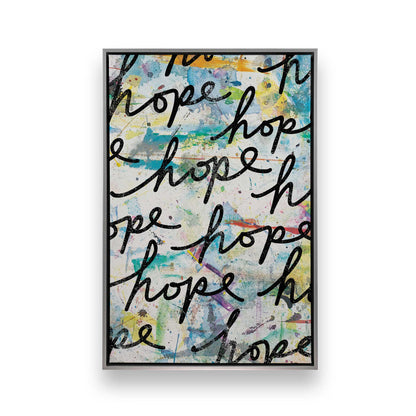 h
hope
hop
e hope h
ope hope
hope h
pe hope